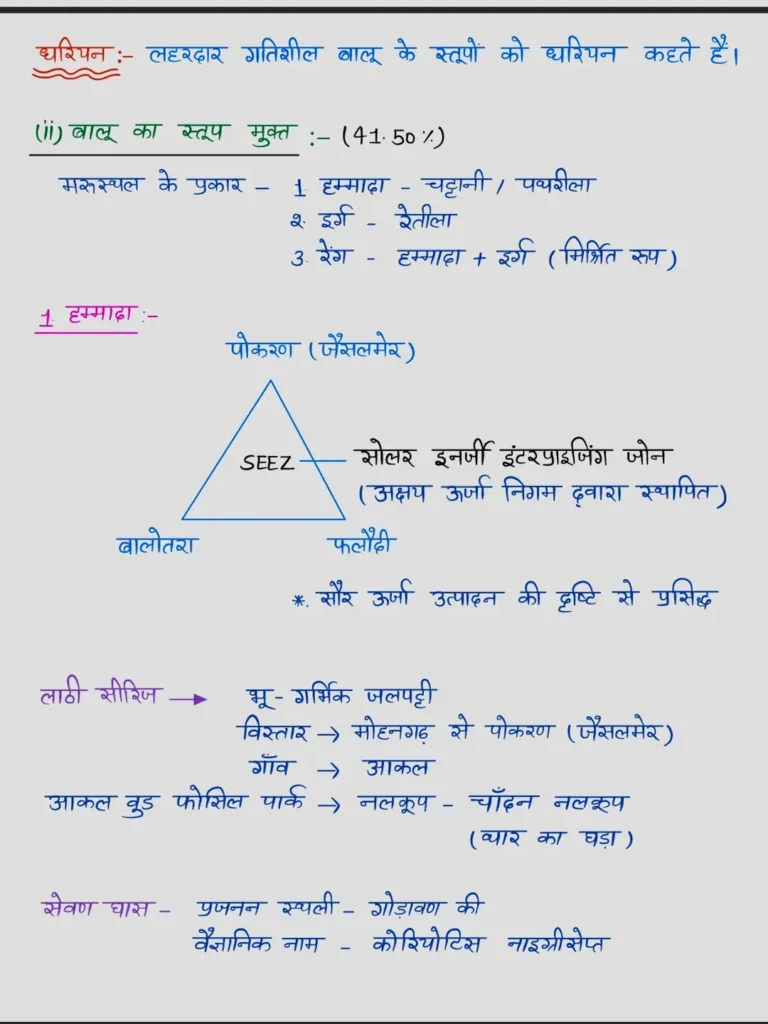 धरियन :- लहरदार गतिशील बालू के स्तूपों को धरियन कहते हैं।
(ii) बालू का स्तूप मुक्त :- (41.50%)
मरुस्थल के प्रकार - 1. हम्मादा - चट्टानी / पथरीला
२. इर्ग - रेतीला
3. रेंग - हम्मादा + इर्ग (मिर्श्रित रूप)
1. हम्मादा :-
पोकरण (जैसलमेर)
SEEZ
सोलर इनर्जी इंटरप्राइजिंग जोन
(अक्षय ऊर्जा निगम द्वारा स्थापित)
बालोतरा फलौदी
*. सौर ऊर्जा उत्पादन की दृष्टि से प्रसिद्ध
लाठी सीरिज → भू-गर्भिक जलपट्टी
विस्तार → मोहनगढ़ से पोकरण (जैसलमेर)
गाँव → आकल
आकल वुड फोसिल पार्क → नलकूप - चाँदन नलकूप
(थार का घड़ा)
सेवण घास - प्रजनन स्थली - गोड़ावण की
वैज्ञानिक नाम - कोरियोटिस नाइग्रीसेप्त